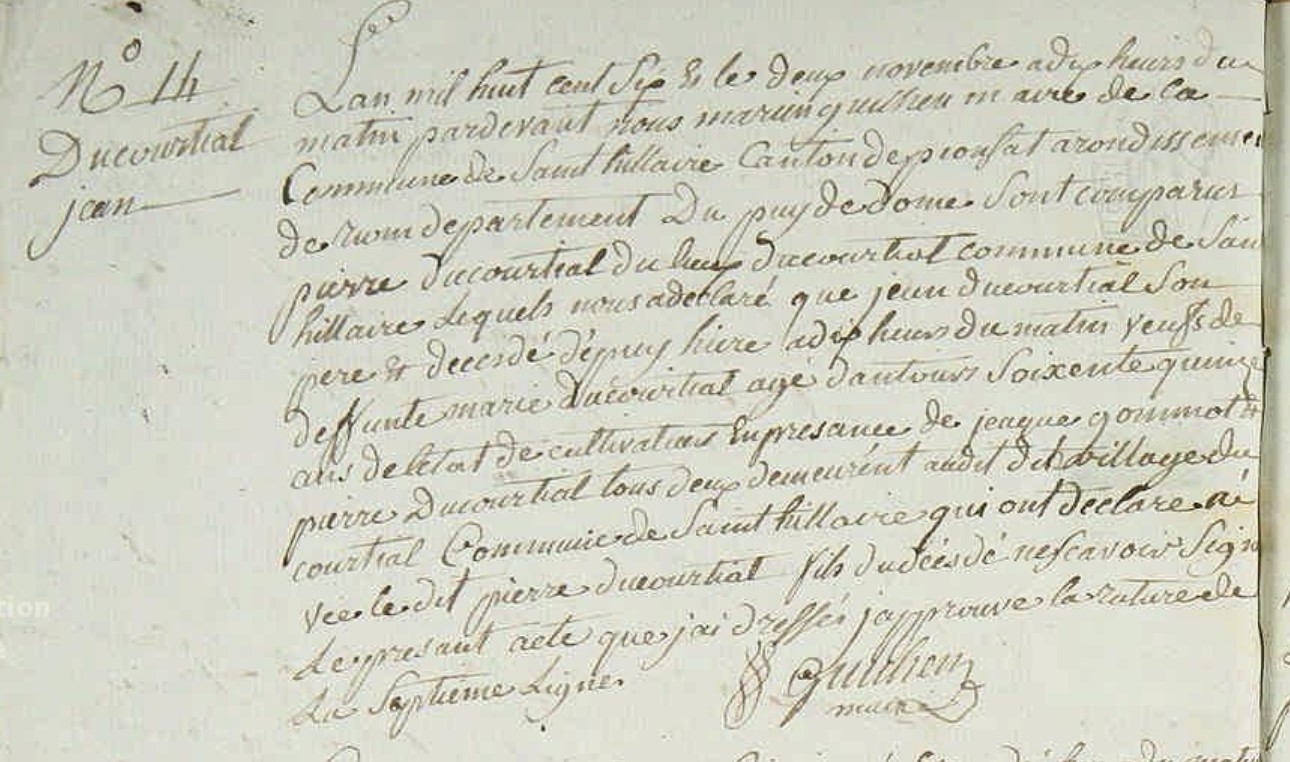 N° 14
Ducourtial
jean
Lan mil huit cent Six & le deux novembre a dix heures du
matin pardevant nous marin guillhen maire de la
Commune de Saint hillaire Canton de pionsat arondissemen
de riom departement Du puy de Dome Sont comparus
pierre ducourtial du lieux ducourtial commune de Sain
hillaire Lequels nous a déclaré que jean ducourtial Son
pere & decédé dépuy hiere a dix heures du matin veufs de
deffunte marie Ducourtial agé dantours Soixente quinze
ans de letat de cultivateur En presance de jeaque gommot &
pierre Ducourtial tous deux demeurént audit dit village du
courtial Commune de Saint hillaire qui ont declare a
vec le dit pierre ducourtial fils du décédé ne scavoir Sign
Le presant acte que jai dressés japprouve la rature de
La Septieme Ligne
maire